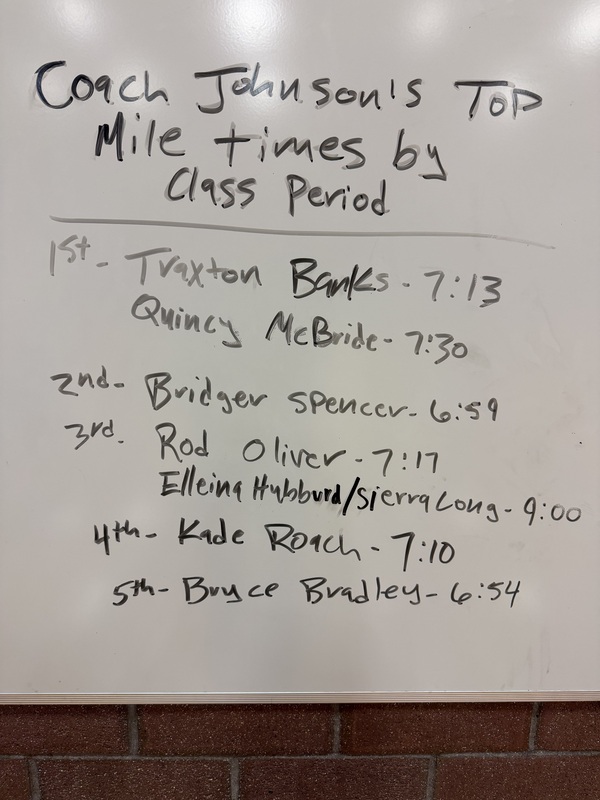 Coach Johnson's Top
Mile times by
Class Period
1st- Traxton Banks - 7:13
Quincy McBride- 7:30
2nd- Bridger Spencer- 6:59
3rd- Rod Oliver - 7:17
Elleina Hubburd/Sierra Long - 9:00
4th- Kade Roach - 7:10
5th- Bryce Bradley- 6:54